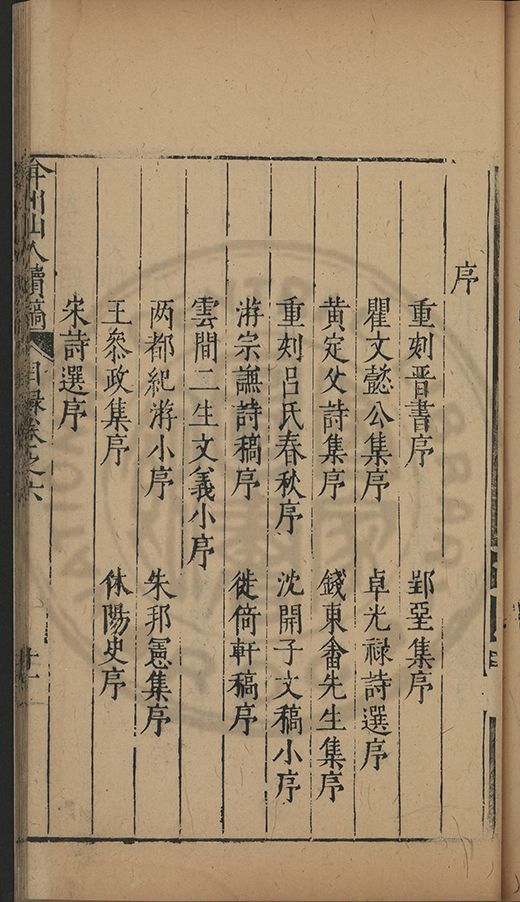 序
重刻晋書序　郢堊集序
瞿文懿公集序　卓光禄詩選序
黄定父詩集序　錢東畬先生集序
重刻呂氏春秋序　沈開子文稿小序
游宗謙詩稿序　徙倚軒稿序
雲間二生文義小序
两都紀游小序　朱邦憲集序
王叅政集序　休陽史序
宋詩選序
弇州山人續稿　目録卷之六　十一